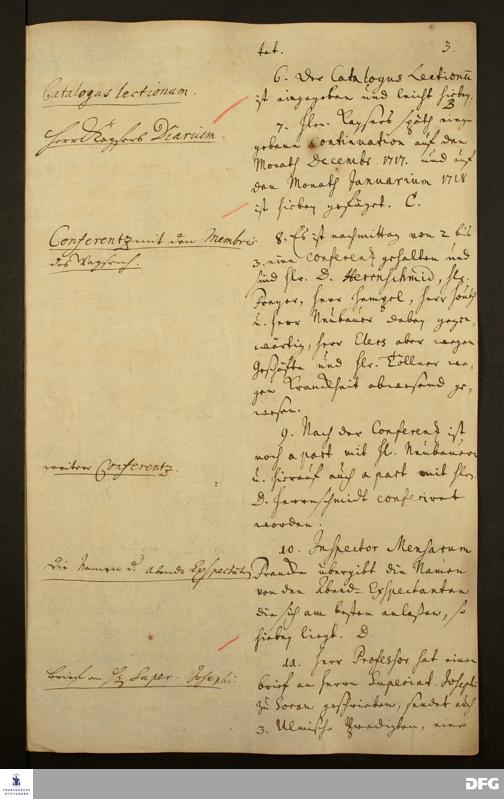 3.
tet.
Catalogus lectionum.
6. Der Catalogus Lectionum
ist eingegeben und leicht hierbey.
B
Herr Kaysers Diarium.
7. Hln. Kaysers späth einge-
gebene Continuation auf den
Monath Decembr. 1717. und auf
den Monath Januarium 1718
ist hierbey gefüget. C.
Conferentz mit den Membris
des Wayßenh.
8. Es ist nachmittag von 2 bis
3. eine Conferentz gehalten und
sind Hr. D. Herrnschmid, Hr.
Freyer, Herr Hempel, Herr
u. Herr Neubauer dabey gegen-
wärtig, Herr Elers aber wegen
Geschäffte und Hr. Töllner we-
gen Kranckheit abwesend ge-
wesen.
weitere Conferentz.
9. Nach der Conferentz ist
noch apart mit Hl. Neubauern
u. hierauf auch apart mit Hln.
D. Herrnschmidt conferiret
worden.
Die Namen d. Abend-Exspectanten
10. Inspector Mensarum
Francke übergibt die Namen
von den Abend-Exspectanten
die sich am besten anlaßen, so
hierbey liegt. D.
Brief an H. Super. Josephi
11. Herr Professor hat einen
brief an Herrn Superint. Josephi
zu Sorau geschrieben, sendet auch
3. Ulmische Predigten, eine
FRANCKESCHE STIFTUNGEN
DFG